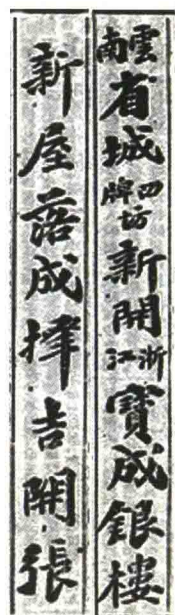 雲南省城四牌坊新開浙江寶成銀樓
新屋落成擇吉開張